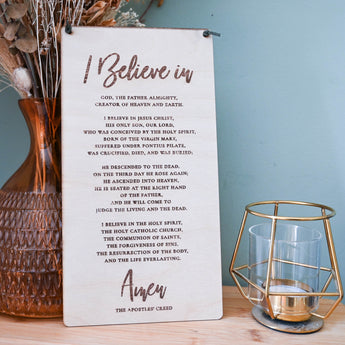 I Believe in
GOD, THE FATHER ALMIGHTY,
CREATOR OF HEAVEN AND EARTH.
I BELIEVE IN JESUS CHRIST,
HIS ONLY SON, OUR LORD,
WHO WAS CONCEIVED BY THE HOLY SPIRIT,
BORN OF THE VIRGIN MARY,
SUFFERED UNDER PONTIUS PILATE,
WAS CRUCIFIED, DIED, AND WAS BURIED;
HE DESCENDED TO THE DEAD.
ON THE THIRD DAY HE ROSE AGAIN;
HE ASCENDED INTO HEAVEN,
HE IS SEATED AT THE RIGHT HAND
OF THE FATHER,
AND HE WILL COME TO
JUDGE THE LIVING AND THE DEAD.
I BELIEVE IN THE HOLY SPIRIT,
THE HOLY CATHOLIC CHURCH,
THE COMMUNION OF SAINTS,
THE FORGIVENESS OF SINS,
THE RESURRECTION OF THE BODY,
AND THE LIFE EVERLASTING.
Amen
THE APOSTLES' CREED